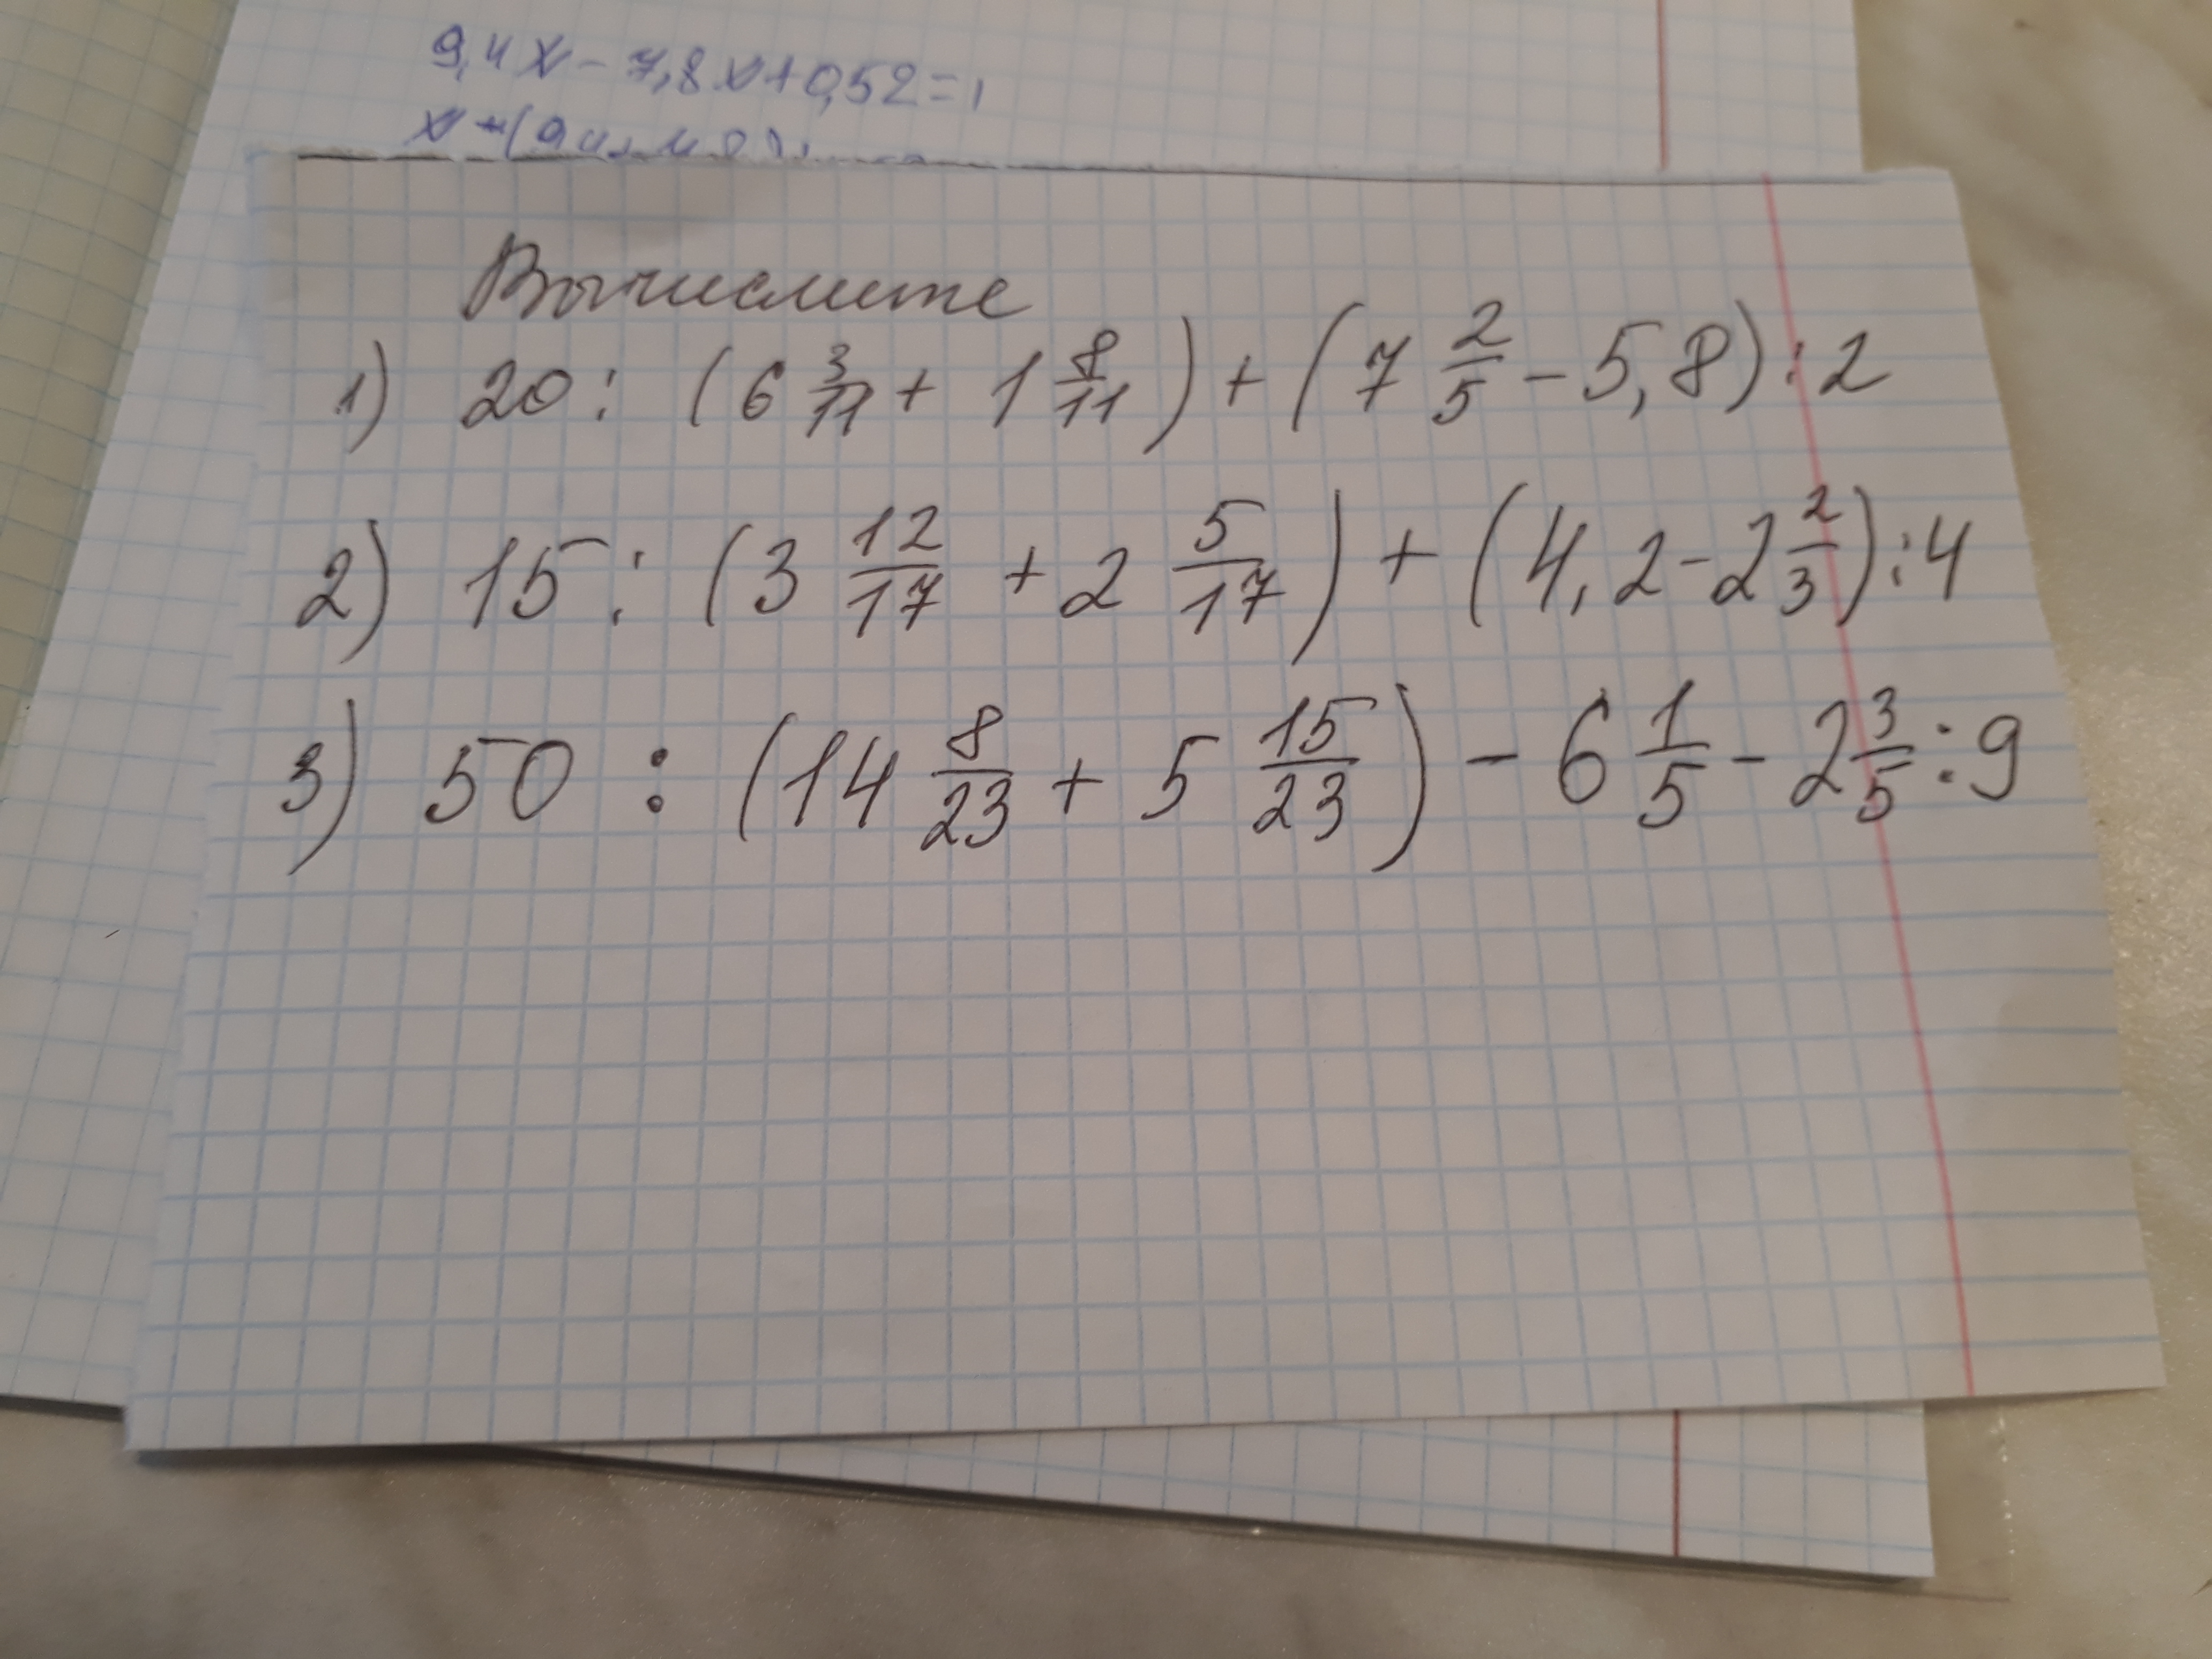 9,4x - 7,8x + 0,52 = 1
Вычислите
1) 20 : (6 3/11 + 1 8/11) + (7 2/5 - 5,8) : 2
2) 15 : (3 12/17 + 2 5/17) + (4,2 - 2 2/3) : 4
3) 50 : (14 8/23 + 5 15/23) - 6 1/5 - 2 3/5 : 9